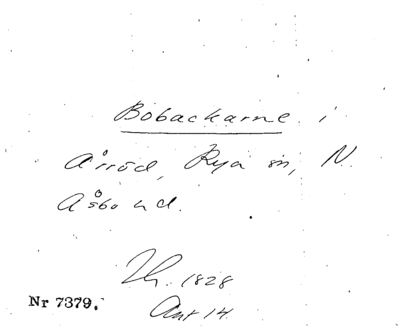 Bobackarne i
Årröd, Rya sn, N.
Åsbo hd.
Th. 1828
Ant 14
Nr 7379.